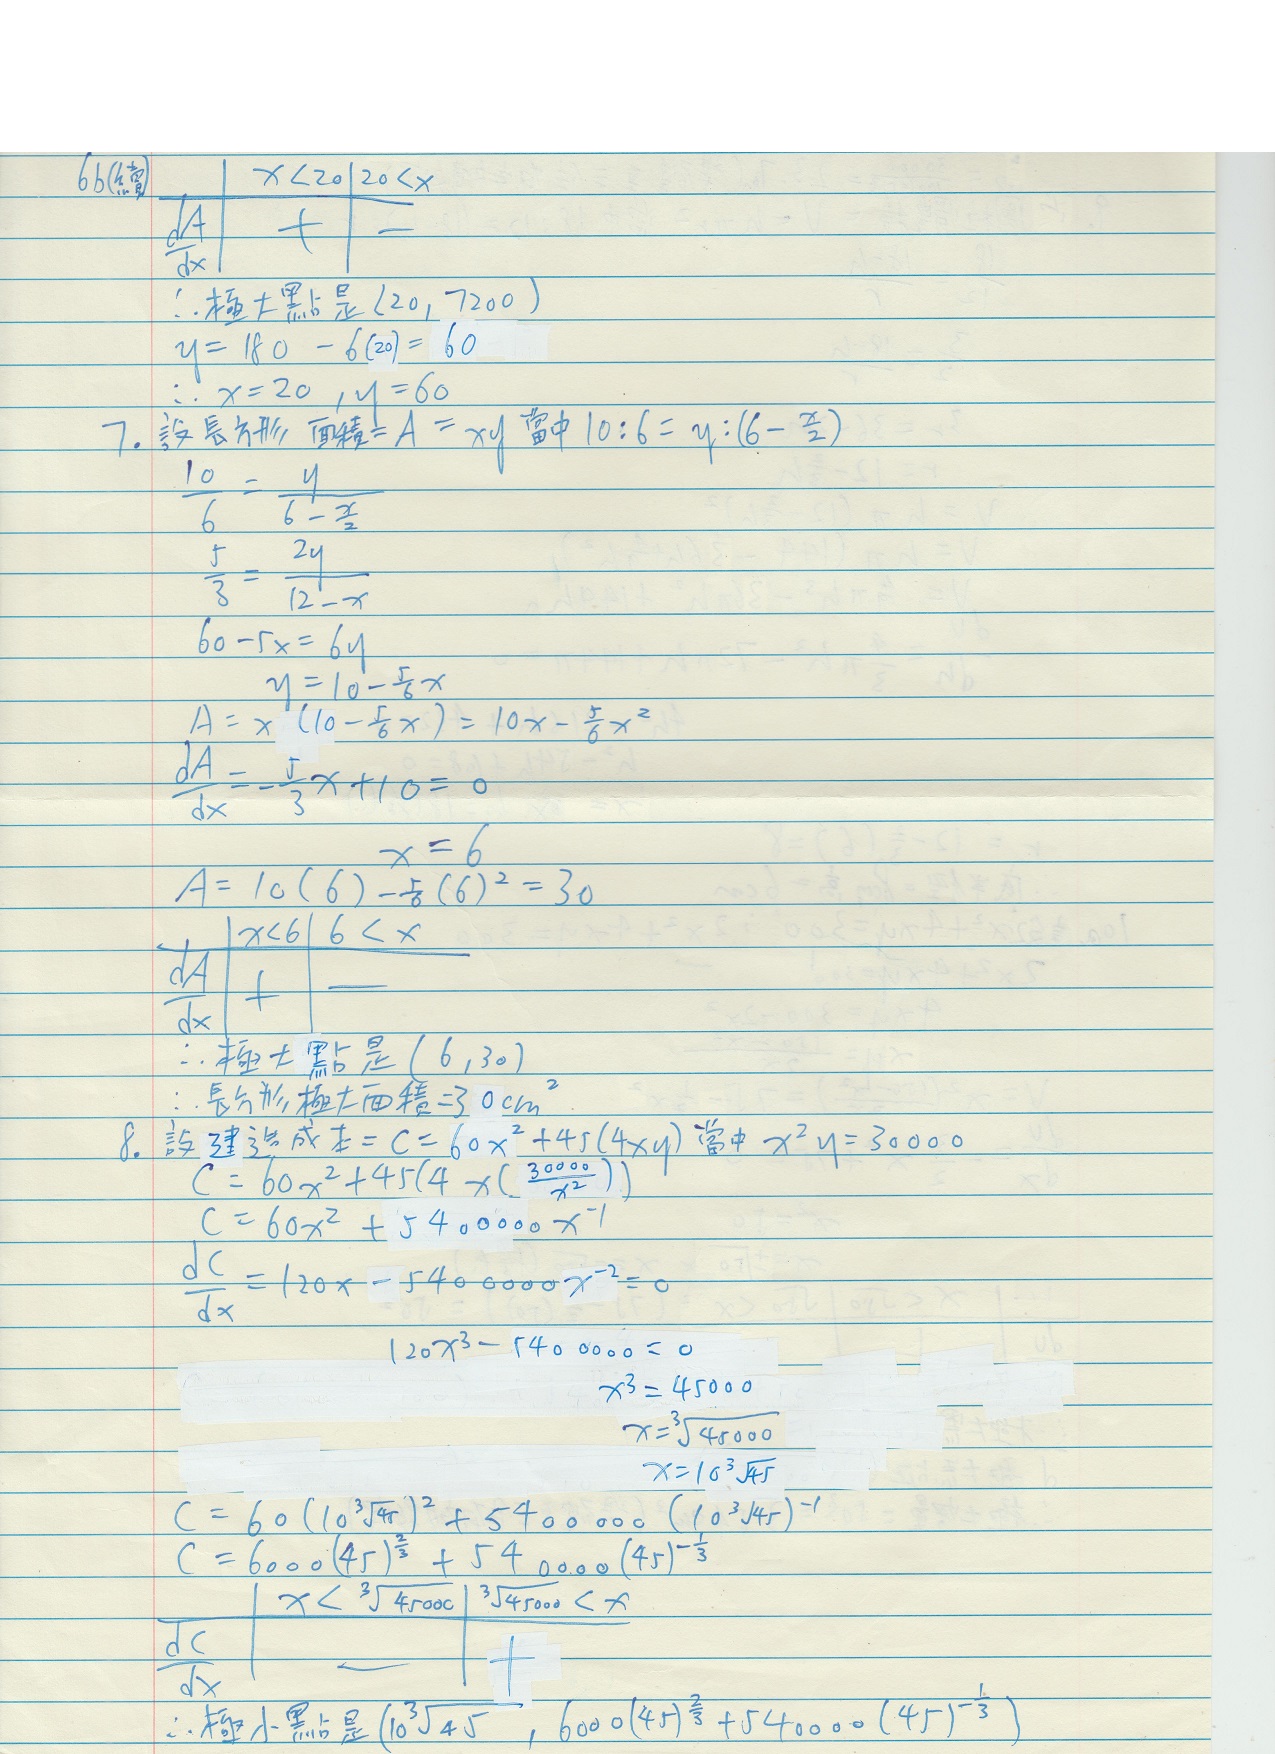 6b(續)
x<20 | 20<x
dA/dx | + | −
∴極大點是(20, 7200)
y = 180 − 6(20) = 60
∴ x = 20 , y = 60
7. 設長方形面積 = A = xy 當中 10:6 = y:(6−x/2)
10/6 = y/(6−x/2)
5/3 = 2y/(12−x)
60−5x = 6y
y = 10−5/6x
A = x (10−5/6x) = 10x−5/6x²
dA/dx = −5/3x+10 = 0
x = 6
A = 10(6) −5/6(6)² = 30
x<6 | 6<x
dA/dx | + | −
∴極大點是(6,30)
∴長方形極大面積=30cm²
8. 設建造成本 = C = 60x²+45(4xy) 當中 x²y = 30000
C = 60x²+45(4x(30000/x²))
C = 60x² + 5400000x⁻¹
dC/dx = 120x − 5400000x⁻² = 0
120x³ − 5400000 = 0
x³ = 45000
x = ³√45000
x = 10³√45
C = 60(10³√45)² + 5400000(10³√45)⁻¹
C = 6000(45)^(2/3) + 540000(45)^(−1/3)
x < ³√45000 | ³√45000 < x
dC/dx | − | +
∴極小點是(10³√45 , 6000(45)^(2/3) + 540000(45)^(−1/3))